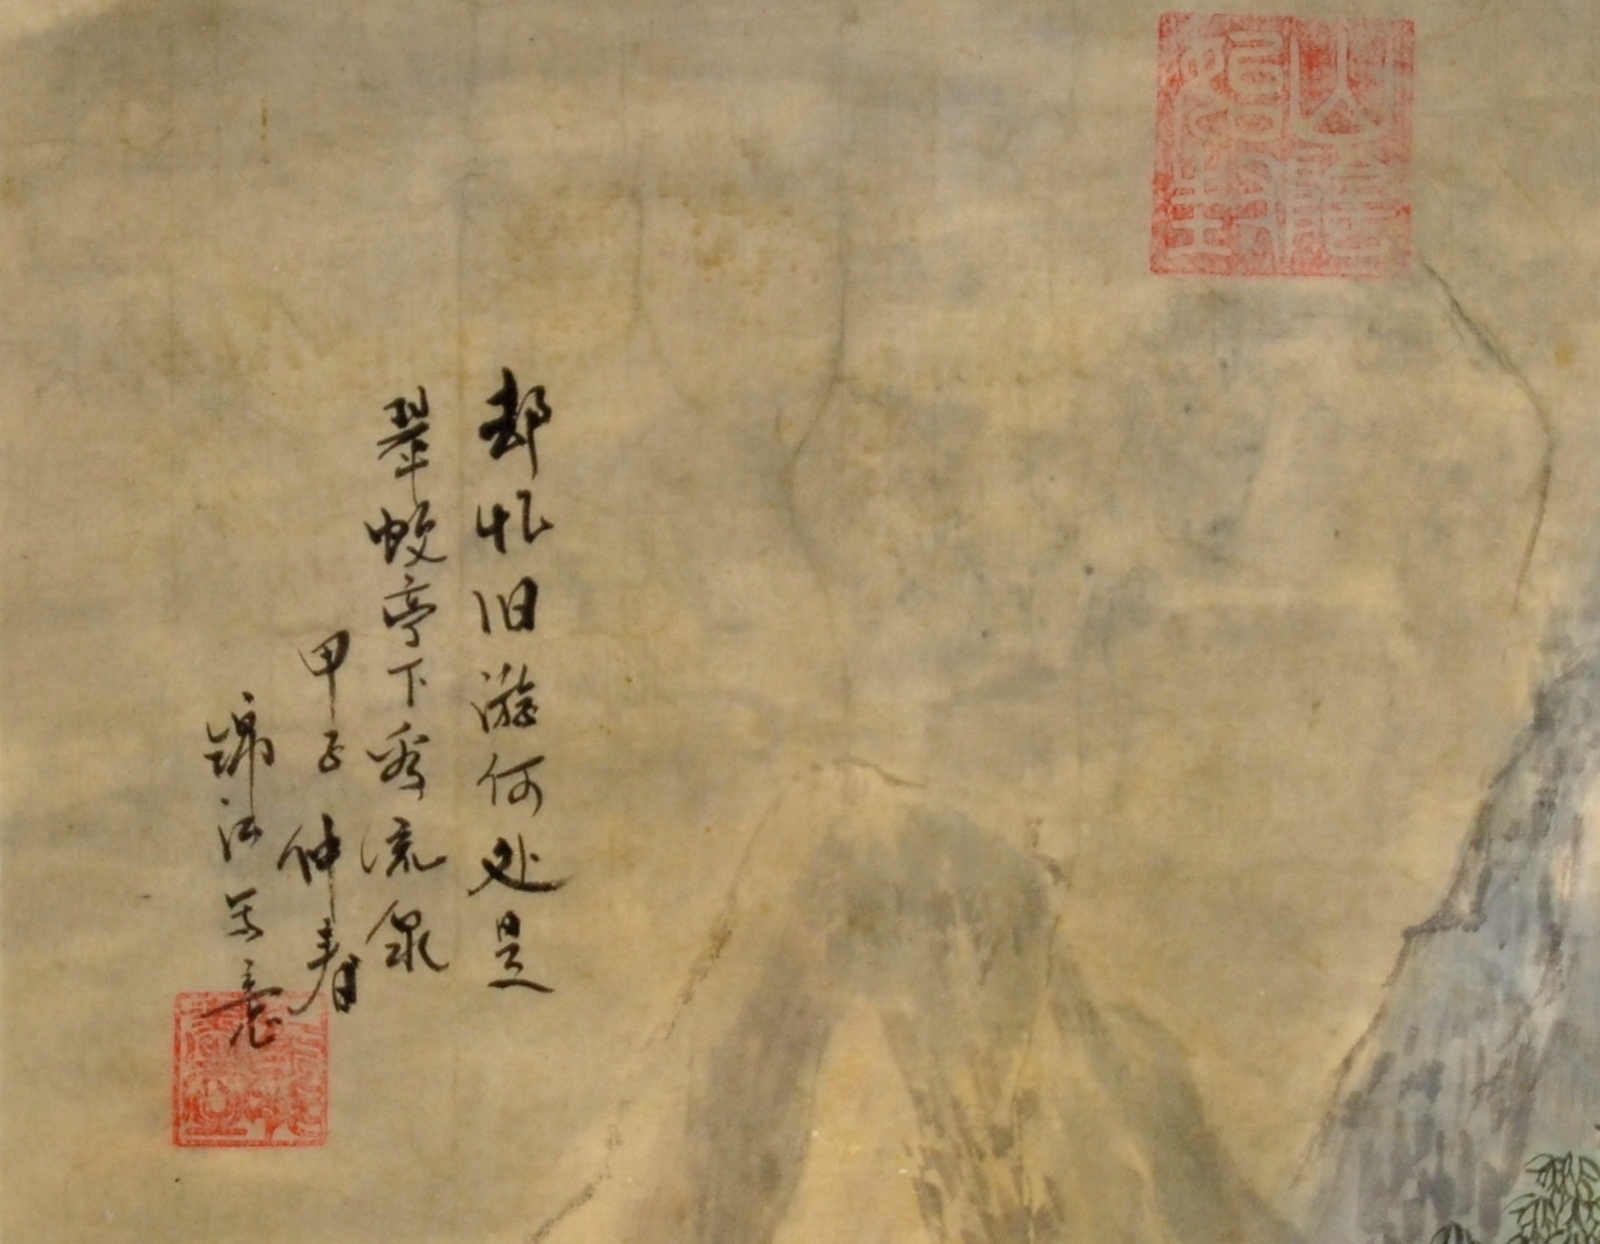 山陰始封
却忆旧游何处是
翠蛟亭下看流泉
甲子仲春
锦江写意